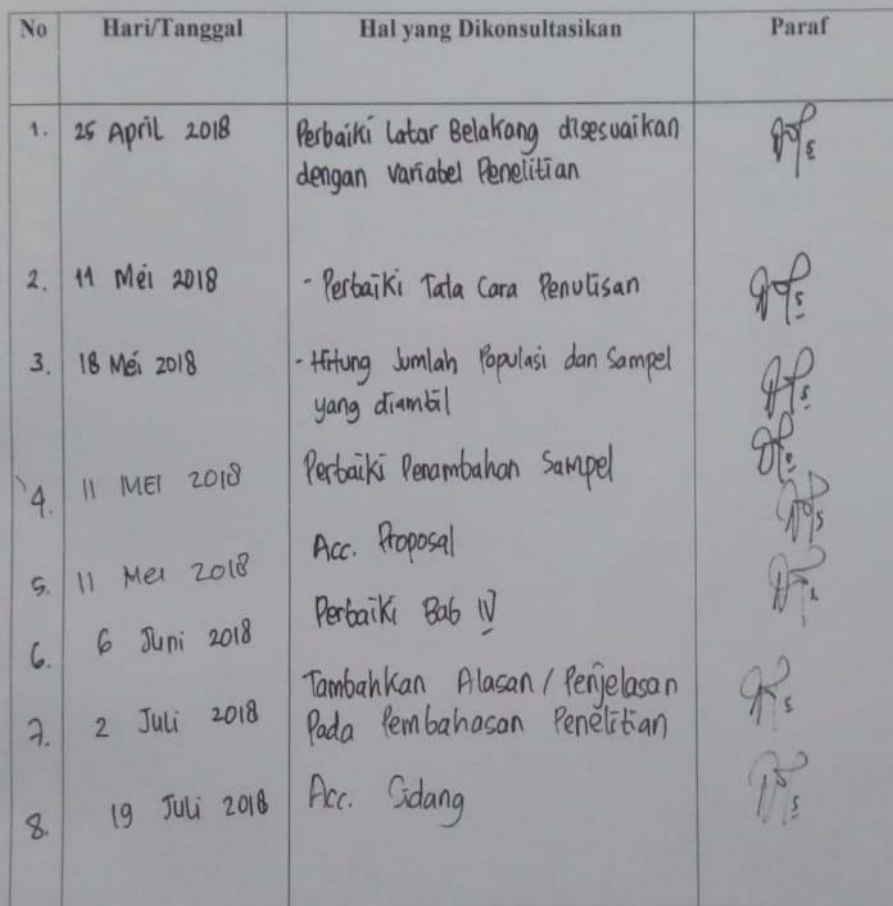 No Hari/Tanggal Hal yang Dikonsultasikan Paraf
1. 25 April 2018 Perbaiki Latar Belakang disesuaikan
dengan Variabel Penelitian
2. 11 Mei 2018 - Perbaiki Tata Cara Penulisan
3. 18 Mei 2018 - Hitung Jumlah Populasi dan Sampel
yang diambil
4. 11 MEI 2018 Perbaiki Penambahan Sampel
5. 11 Mei 2018 Acc. Proposal
6. 6 Juni 2018 Perbaiki Bab IV
7. 2 Juli 2018 Tambahkan Alasan / Penjelasan
Pada Pembahasan Penelitian
8. 19 Juli 2018 Acc. Sidang